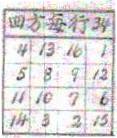 四方每行34
4 13 16 1
5 8 9 12
11 10 7 6
14 3 2 15